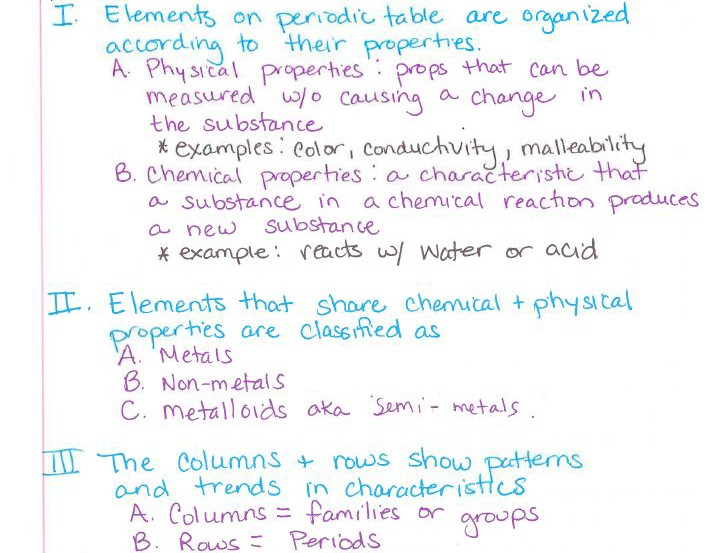 I. Elements on periodic table are organized
according to their properties.
A. Physical properties : props that can be
measured w/o causing a change in
the substance
* examples : color, conductivity, malleability
B. Chemical properties : a characteristic that
a substance in a chemical reaction produces
a new substance
* example : reacts w/ water or acid
II. Elements that share chemical + physical
properties are classified as
A. Metals
B. Non-metals
C. Metalloids aka semi-metals.
III The columns + rows show patterns
and trends in characteristics
A. Columns = families or groups
B. Rows = Periods